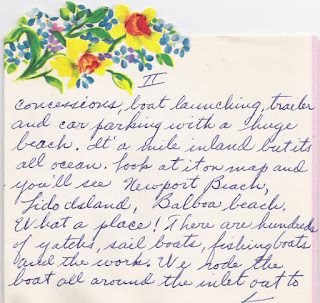 II
concessions, boat launching, trailer
and car parking with a huge
beach. It'a mile inland but its
all ocean. Look at it on map and
you'll see Newport Beach,
Lido Island, Balboa beach.
What a place! There are hundreds
of yatches, sail boats, fishing boats
and the works. We rode the
boat all around the inlet out to